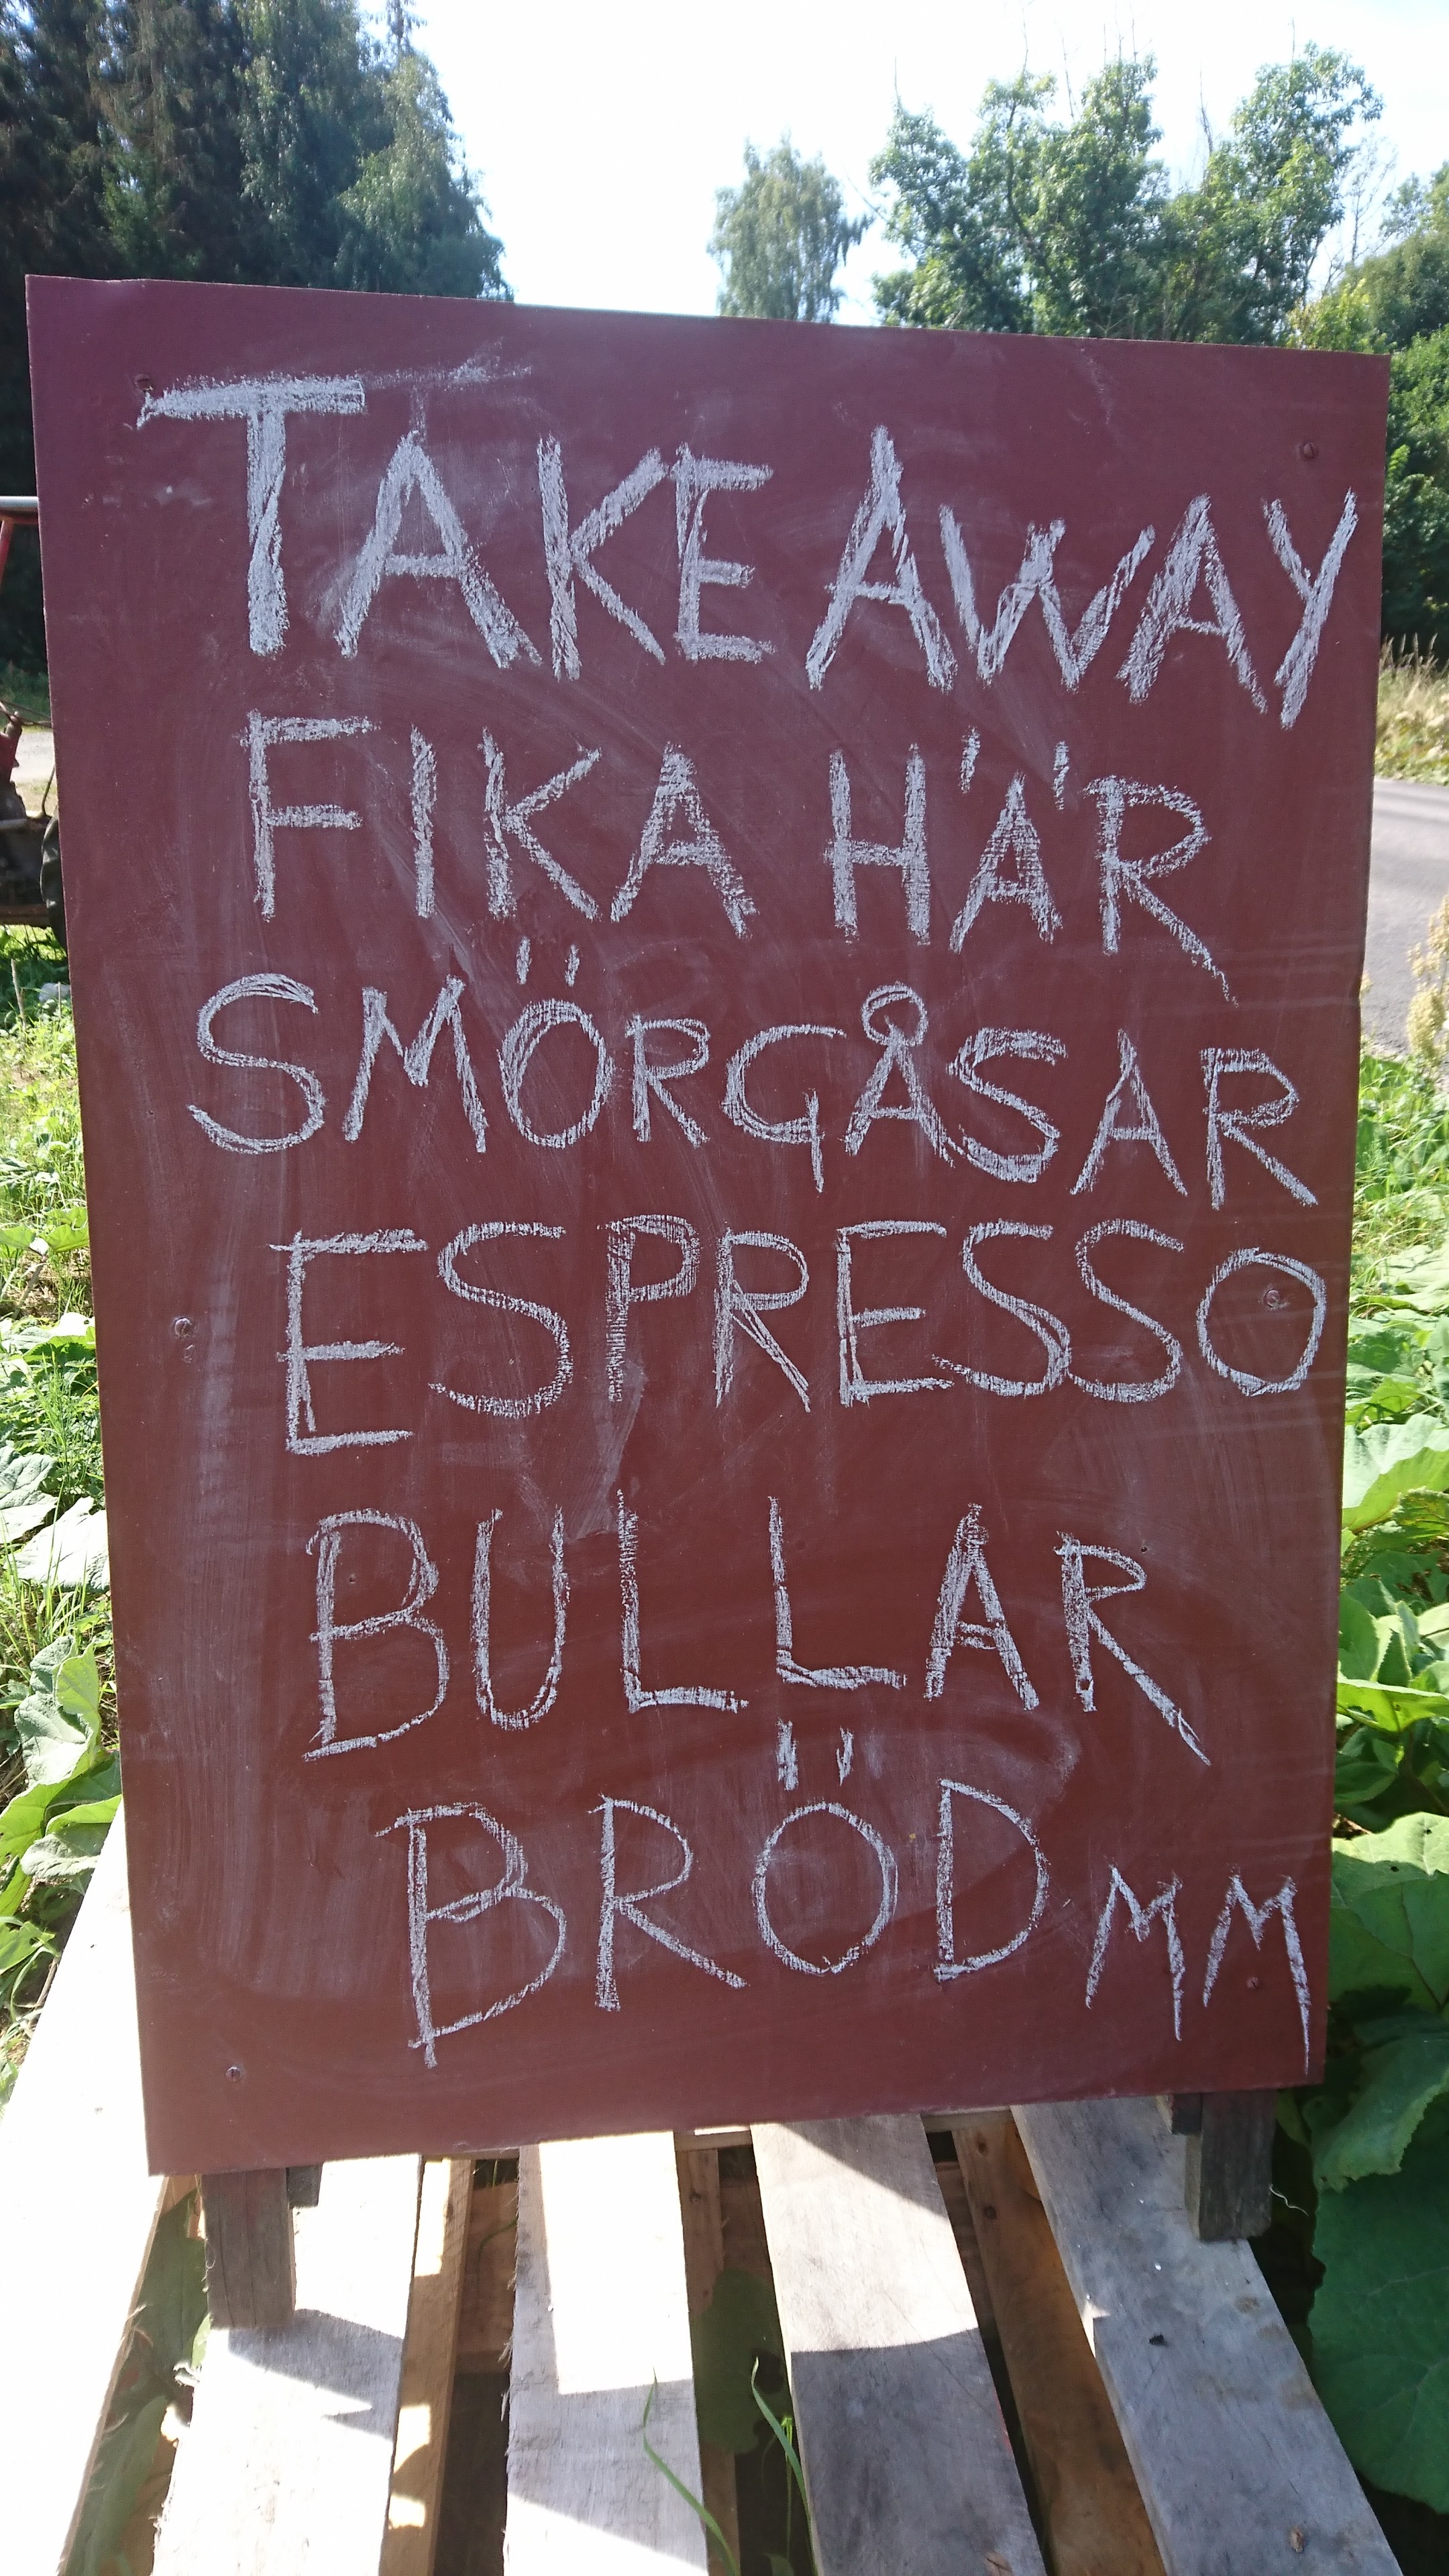 TAKE AWAY
FIKA HÄR
SMÖRGÅSAR
ESPRESSO
BULLAR
BRÖD MM